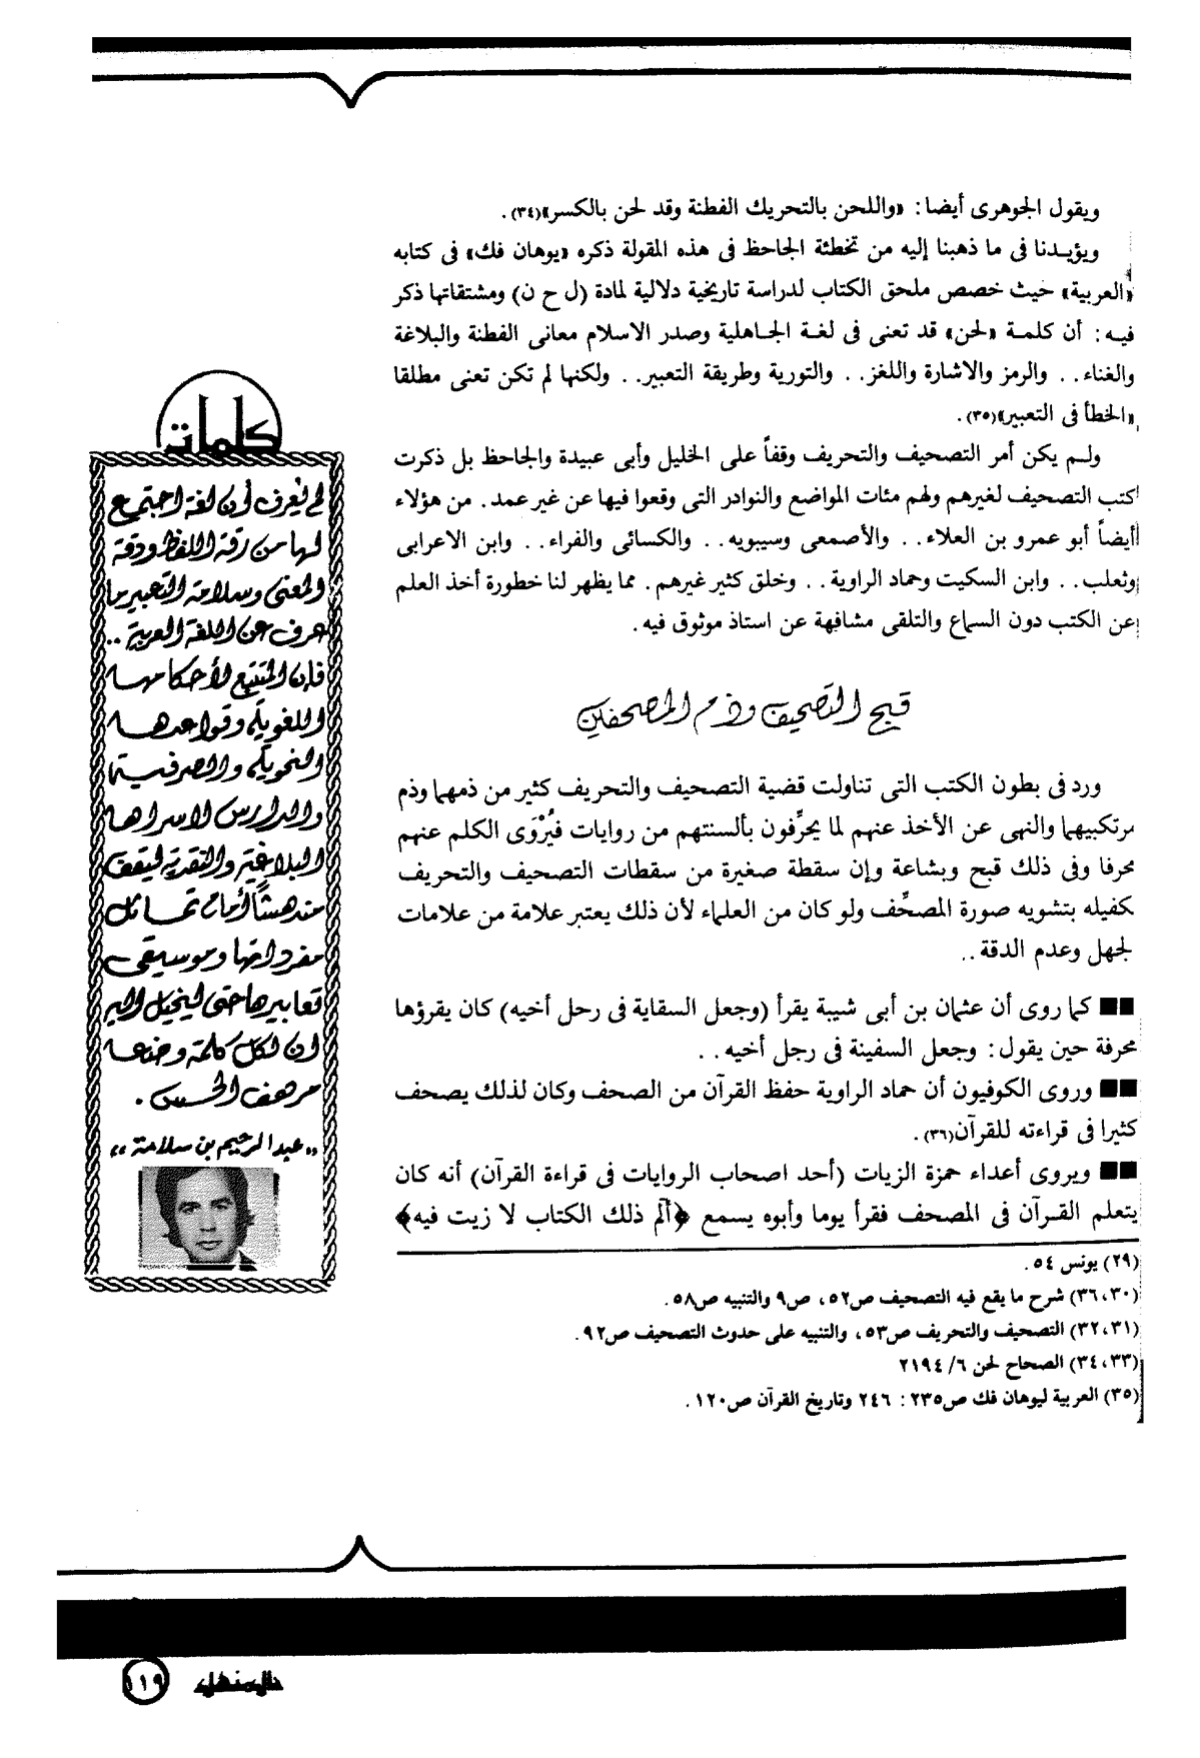 ويقول الجوهرى أيضا: «واللحن بالتحريك الفطنة وقد لحن بالكسر»(٣٤).
ويؤيـدنا فى ما ذهبنا إليه من تخطئة الجاحظ فى هذه المقولة ذكره «يوهان فك» فى كتابه
«العربية» حيث خصص ملحق الكتاب لدراسة تاريخية دلالية لمادة (ل ح ن) ومشتقاتها ذكر
فيـه: أن كلمـة «لحن» قد تعنى فى لغـة الجـاهلية وصدر الاسلام معانى الفطنة والبلاغة
والغناء.. والرمز والاشارة واللغز.. والتورية وطريقة التعبير.. ولكنها لم تكن تعنى مطلقا
«الخطأ فى التعبير»(٣٥).
ولـم يكن أمر التصحيف والتحريف وقفاً على الخليل وأبى عبيدة والجاحظ بل ذكرت
كتب التصحيف لغيرهم ولهم مئات المواضع والنوادر التى وقعوا فيها عن غير عمد. من هؤلاء
أيضاً أبو عمرو بن العلاء.. والأصمعى وسيبويه.. والكسائى والفراء.. وابن الاعرابى
وثعلب.. وابن السكيت وحماد الراوية.. وخلق كثير غيرهم. مما يظهر لنا خطورة أخذ العلم
عن الكتب دون السماع والتلقى مشافهة عن استاذ موثوق فيه.
قبح التصحيف وذم المصحفين
ورد فى بطون الكتب التى تناولت قضية التصحيف والتحريف كثير من ذمهما وذم
مرتكبيهما والنهى عن الأخذ عنهم لما يحرِّفون بألسنتهم من روايات فيُرْوَى الكلم عنهم
محرفا وفى ذلك قبح وبشاعة وإن سقطة صغيرة من سقطات التصحيف والتحريف
كفيله بتشويه صورة المصحِّف ولو كان من العلماء لأن ذلك يعتبر علامة من علامات
لجهل وعدم الدقة..
■■ كما روى أن عثمان بن أبى شيبة يقرأ (وجعل السقاية فى رحل أخيه) كان يقرؤها
محرفة حين يقول: وجعل السفينة فى رجل أخيه..
■■ وروى الكوفيون أن حماد الراوية حفظ القرآن من الصحف وكان لذلك يصحف
كثيرا فى قراءته للقرآن(٣٦).
■■ ويروى أعداء حمزة الزيات (أحد اصحاب الروايات فى قراءة القرآن) أنه كان
يتعلم القـرآن فى المصحف فقرأ يوما وأبوه يسمع ﴿ألم ذلك الكتاب لا زيت فيه﴾
(٢٩) يونس ٥٤.
(٣٦،٣٠) شرح ما يقع فيه التصحيف ص٥٢، ص٩ والتنبيه ص٥٨.
(٣٢،٣١) التصحيف والتحريف ص٥٣، والتنبيه على حدوث التصحيف ص٩٢.
(٣٤،٣٣) الصحاح لحن ٦/ ٢١٩٤
(٣٥) العربية ليوهان فك ص٢٣٥: ٢٤٦ وتاريخ القرآن ص١٢٠.
كلمات
لم يُعرف أن لغة اجتمع
لها من رقة اللفظ ودقة
المعنى وسلامة التعبير ما
عرف عن اللغة العربية..
فإن المتتبع لأحكامها
اللغوية وقواعدها
النحوية والصرفية
والدارس لاسرارها
البلاغية والنقدية ليقف
مندهشاً أمام تماثل
مفرداتها وموسيقى
تعابيرها حتى ليخيل إليه
ان لكل كلمة وضعها
مرهف الحس.
«عبدالرحيم بن سلامة»
المنهل ١١٩